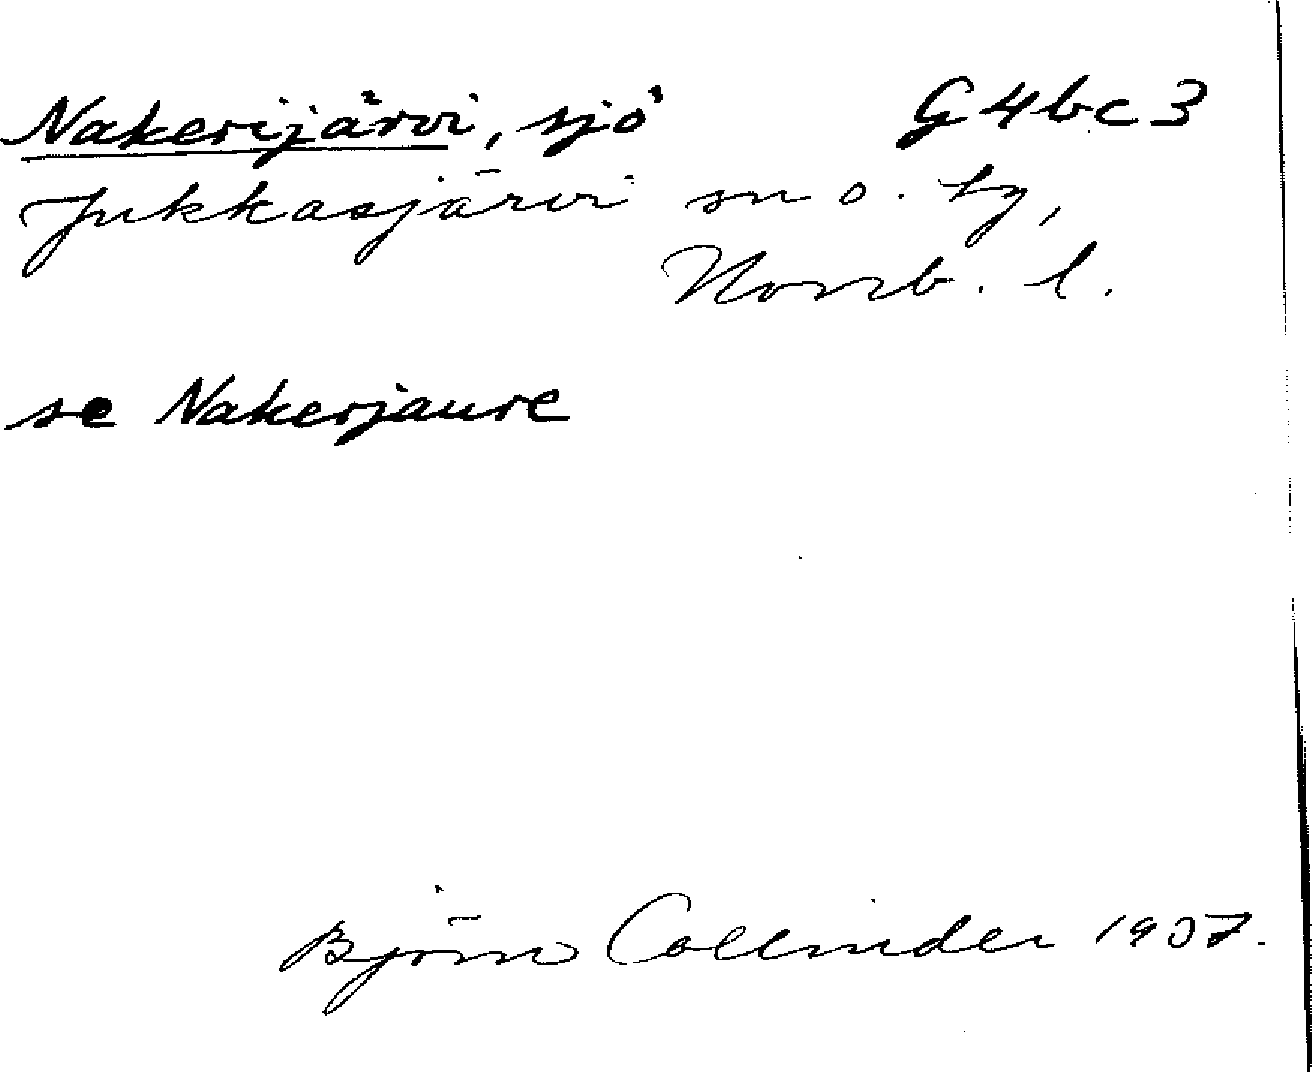 Nakerijärvi, sjö G4bc3
Jukkasjärvi sn o. tg,
Norrb. l.
se Nakerjaure
Björn Collinder 1937.